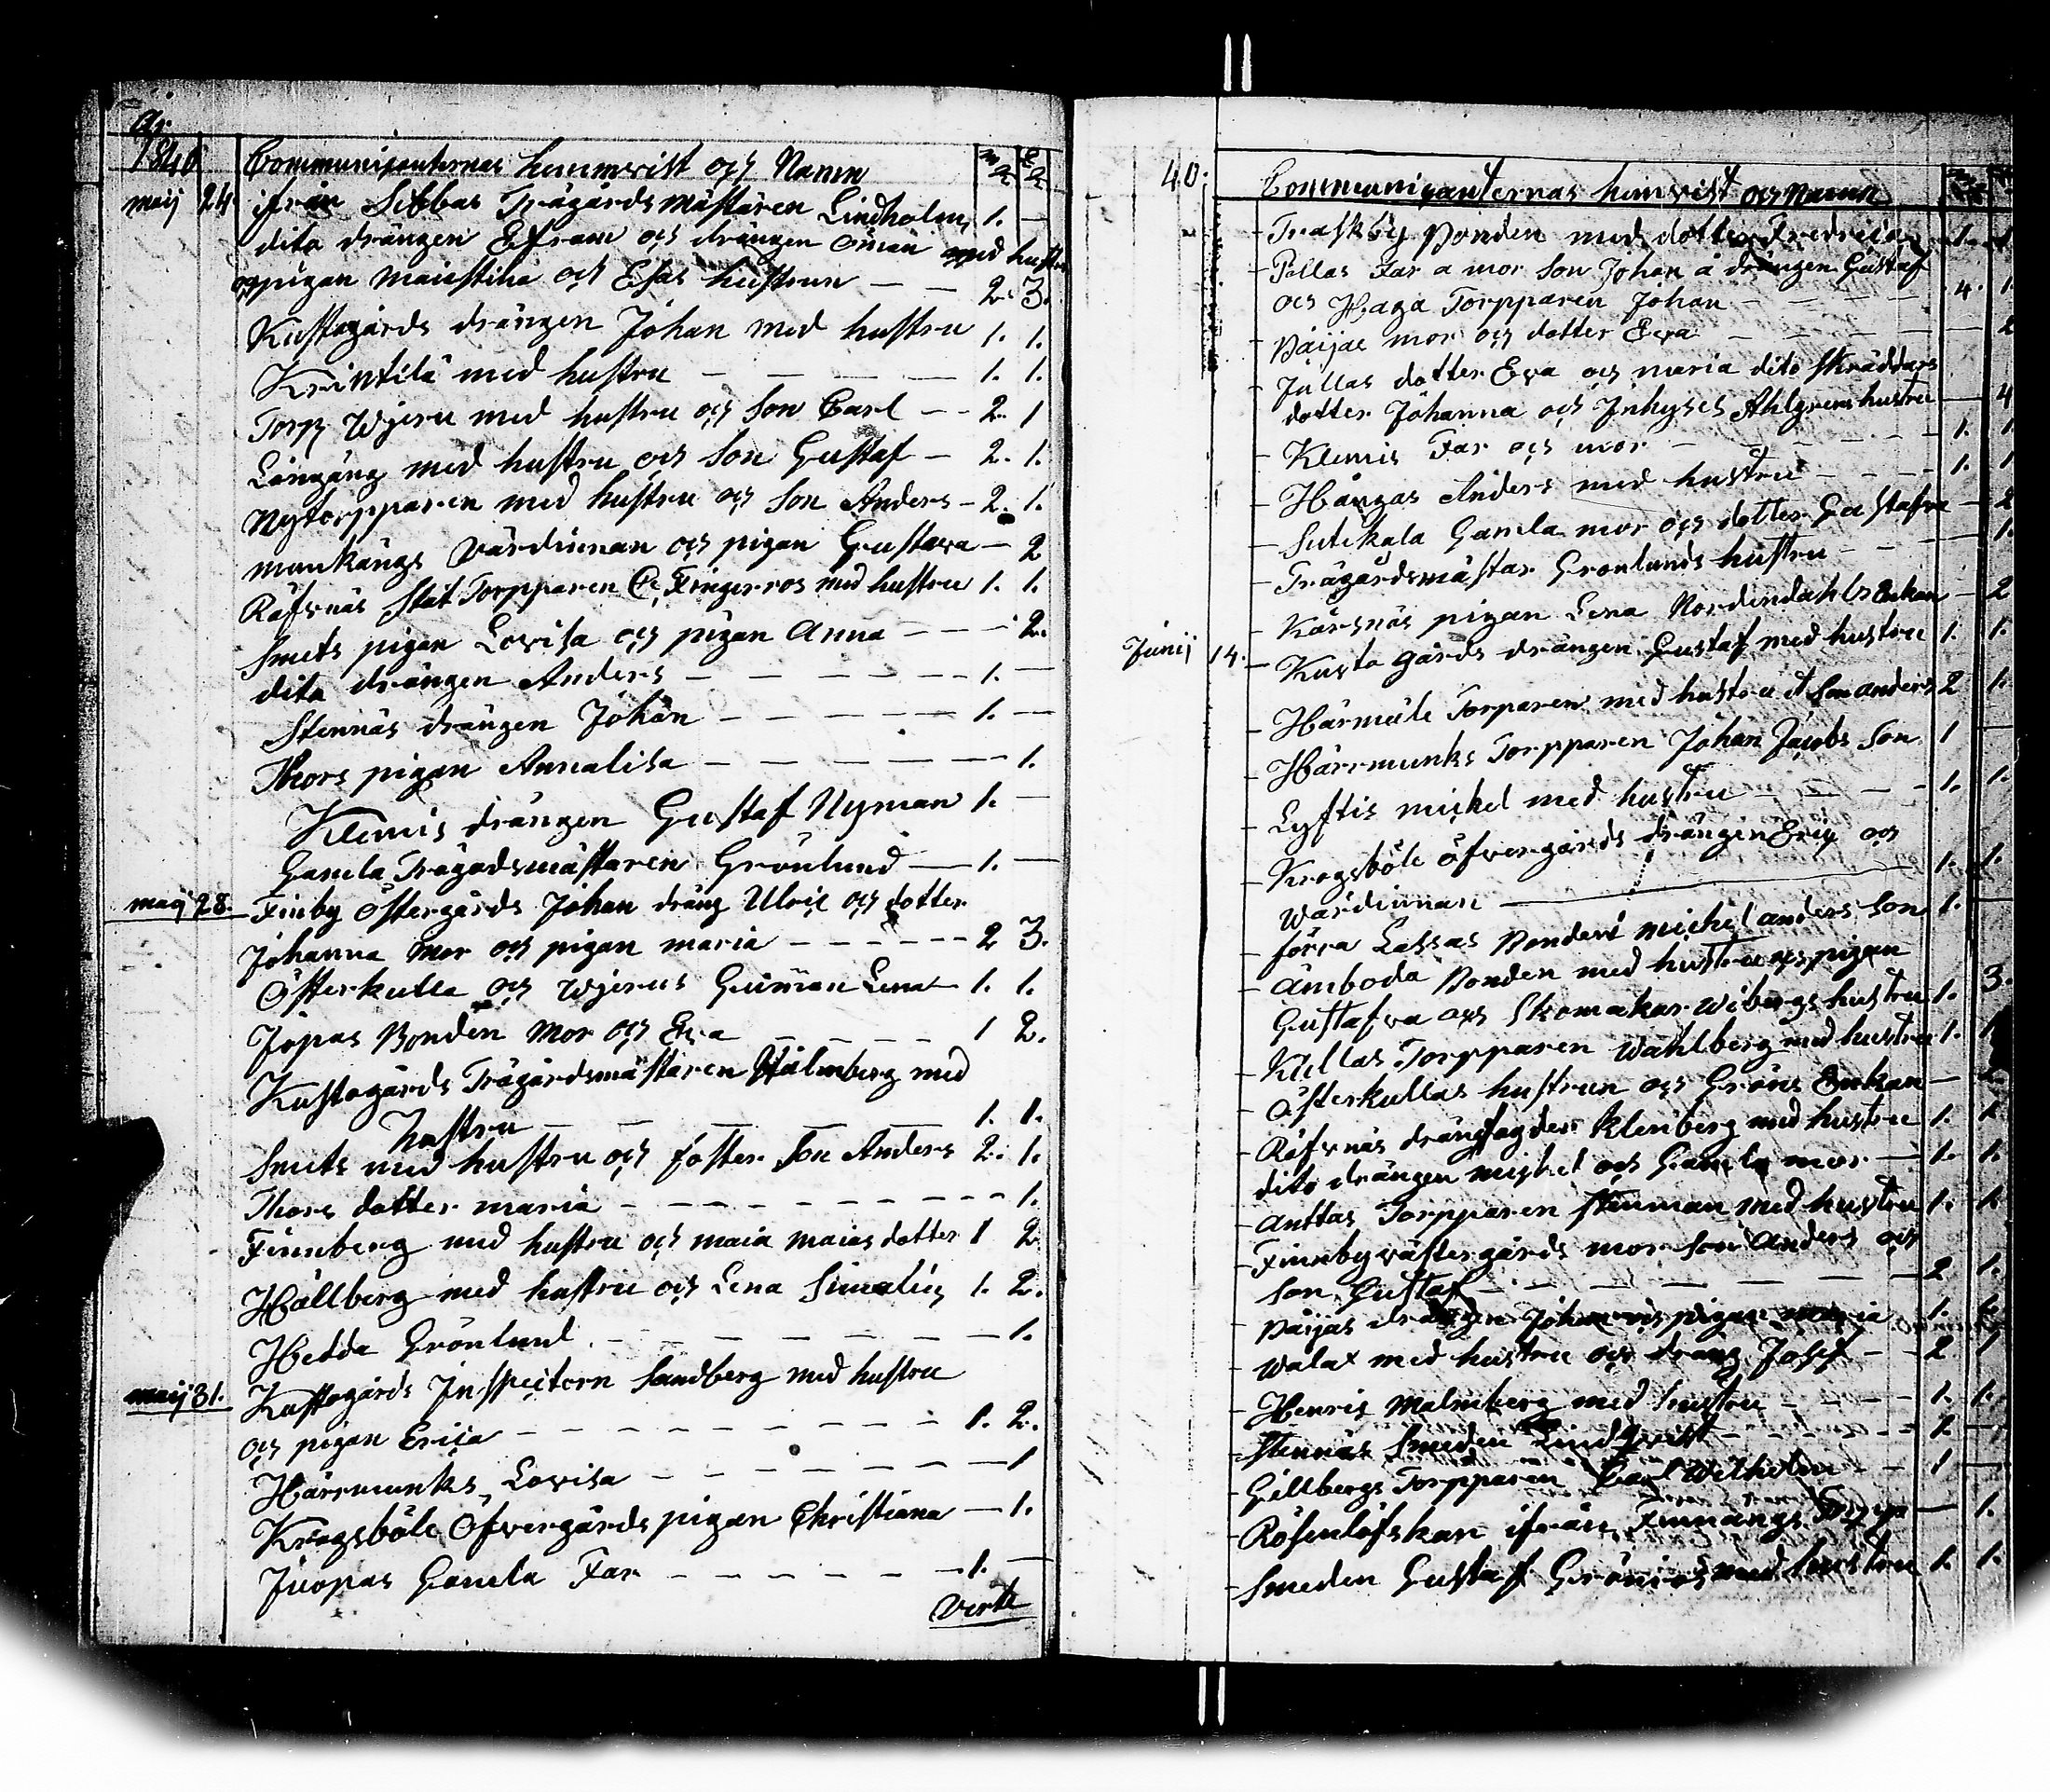 År
1840 Communicanternas hemmvist och Namn
maij 24. ifrån Sibbas Trägårdsmästaren Lindholm 1. —
dito drängen Efram och drängen Öman med hustru
och pigan maiastina och Esas hustrun — — 2. 3.
Kustogårds drängen Johan med hustru 1. 1.
Krintilä med hustru — — — — 1. 1.
Torp Wjeru med hustru och Son Carl — — 2. 1
Långäng med hustru och Son Gustaf — 2. 1.
Nytorpparen med hustru och Son Anders — 2. 1.
munkängs värdinnan och pigan Gustava — 2
Räfsnäs Stat Torpparen C. Fingerros med hustru 1. 1.
Smets pigan Lovisa och pigan Anna — — — 2.
dito drängen Anders — — — — — — 1. —
Stennäs drängen Johan — — — — — — 1. —
Thors pigan Annalisa — — — — — — — 1.
Klemis drängen Gustaf Nyman 1. —
Gamla Trägadsmästaren Grönlund — 1. —
maij 28. Finby Östergårds Johan dräng Ulric och dotter
Johanna mor och pigan maria — — — — — — 2 3.
Österkulla och Wjerus Lena 1. 1.
Jopas Bonden mor och Eva — — — — 1 2.
Kustogårds Trägårdsmästaren Stålmberg med
hustru — — — — — — 1. 1.
Smets med hustru och foster Son Anders 2. 1.
Thors dotter maria — — — — — — — — — 1.
Finnberg med hustru och maia maias dotter 1 2
Hällberg med hustru och Lena 1. 2.
Hedda Grönlund — — — — — — — 1.
maij 31. Kustogårds Inspectorn Sandberg med hustru
och pigan Erica — — — — — — — — 1. 2.
Härrmunks Lovisa — — — — — — — 1
Krogsböle Öfvergårds pigan Christiana — 1.
Juopas Gamla Far — — — — — — 1. —
Verte
40.
Communicanternas hemvist och Namn
Träskby Bonden med dotter Fredrica 1. 1
Pellas Far a mor Son Johan å drängen Gustaf
och Haga Torpparen Johan — — — — 4. 1.
Päijas mor och dotter Eva — — — — — 2
Jullas dotter Eva och maria dito Skräddars
dotter Johanna och Inhyses Ahlgrens hustru — 4
Klemis Far och mor — — — — — — 1. 1
Hängas Anders med hustru — — — — 1. 1
Sutikala Gamla mor och dotter Gustafva — 2
Trägårdsmästar Gronlunds hustru — — — 1.
Kärsnäs pigan Lena Nordindahls Enkan — 2
Junij 14. Kusto gårds drängen Gustaf med hustru 1. 1.
Härmäle Torparen med hustru å Son anders 2 1.
Härrmunks Torpparen Johan Jacobs Son 1 —
Lyftis michel med hustru — — — — 1. 1.
Krogsböle Öfvergårds drängen Eric och
Wärdinnan — 1. 1.
förra Lassas Bonden michel anders Son 1. —
Åmboda Bonden med hustru och pigan
Gustafva och Skomakar Wibergs hustru 1. 3.
Kullas Torpparen Wahlberg med hustru 1. 1
Österkullas hustrun och Gröns Enkan — 2
Räfsnäs Klenberg med hustru 1. 1
dito drängen michel och Gamla mor — 1. 1.
Anttas Torpparen Stenman med hustru 1. 1
Finnby västergårds mor Son Anders och
Son Gustaf — — — — — — — 2 1.
Päijas drängen Johan och pigan maria 1. 1.
Walax med hustru och dräng Josef — — 2 1
Henris Malmberg med hustru — — — 1. 1.
Stennäs Smeden Lindqvist — — — — — 1 —
Gillbergs Torpparen Carl Wilhelm — — 1 —
Rosenlöfskan ifrån Finnängs Torp — 1.
Smeden Gustaf Grönros med hustru 1. 1.